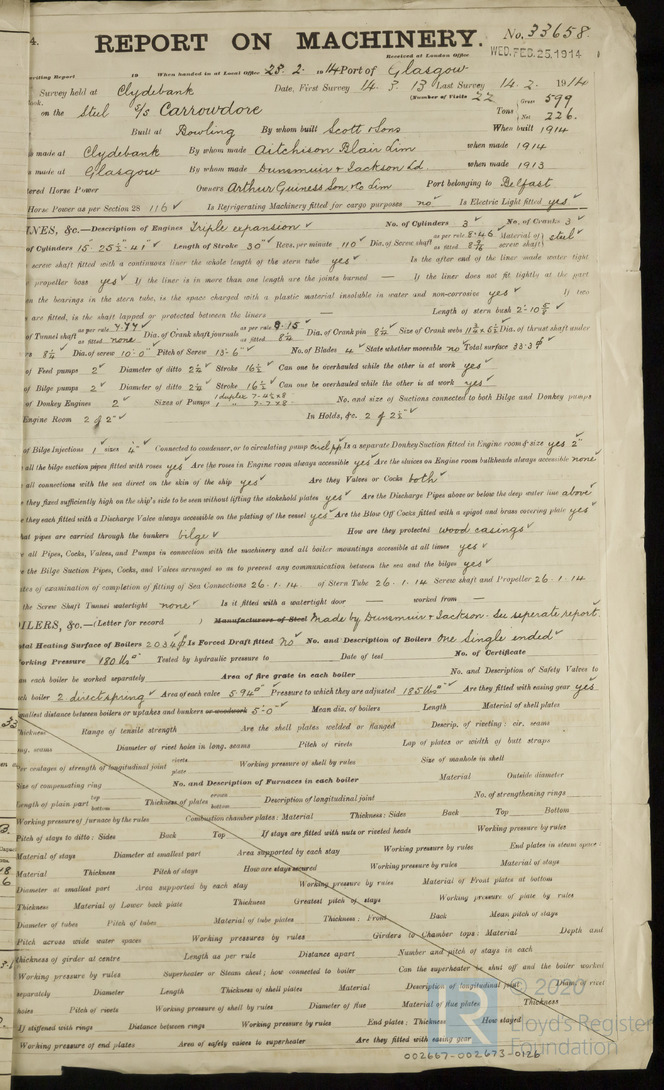 4.
REPORT ON MACHINERY. No. 33658
Received at London Office WED. FEB. 25, 1914
writing Report 19 When handed in at Local Office 23. 2. 1914 Port of Glasgow
Survey held at Clydebank Date, First Survey 14. 3. 13 Last Survey 14. 2. 1914
(Number of Visits 22
on the Steel S/S Carrowdore Tons Gross 599 Net 226.
Built at Bowling By whom built Scott & Sons When built 1914
made at Clydebank By whom made Aitchison Blair Lim when made 1914
made at Glasgow By whom made Dunsmuir & Jackson Ld. when made 1913
tered Horse Power Owners Arthur Guiness Son & Co Lim Port belonging to Belfast
Horse Power as per Section 28 116 Is Refrigerating Machinery fitted for cargo purposes no Is Electric Light fitted yes
INES, &c.—Description of Engines Triple expansion No. of Cylinders 3 No. of Cranks 3
of Cylinders 15" 25½" 41" Length of Stroke 30" Revs. per minute 110 Dia. of Screw shaft as per rule 8.46 as fitted Material of screw shaft steel
screw shaft fitted with a continuous liner the whole length of the stern tube yes Is the after end of the liner made water tight
propeller boss yes If the liner is in more than one length are the joints burned — If the liner does not fit tightly at the part
n the bearings in the stern tube, is the space charged with a plastic material insoluble in water and non-corrosive yes If two
are fitted, is the shaft lapped or protected between the liners — Length of stern bush 2'-10⅝"
of Tunnel shaft as per rule 7.77 as fitted none Dia. of Crank shaft journals as per rule 8.15 as fitted 8¼ Dia. of Crank pin 8¼ Size of Crank webs Dia. of thrust shaft under
rs 8¼ Dia. of screw 10'-0" Pitch of Screw 13'-6" No. of Blades 4 State whether moveable no Total surface 33.3
of Feed pumps 2 Diameter of ditto 2½ Stroke 16½ Can one be overhauled while the other is at work yes
of Bilge pumps 2 Diameter of ditto 2½ Stroke 16½ Can one be overhauled while the other is at work yes
of Donkey Engines 2 Sizes of Pumps 1 duplex 7-4½x8 1 " 7-7x8 No. and size of Suctions connected to both Bilge and Donkey pumps
Engine Room 2 of 2" In Holds, &c. 2 of 2½"
of Bilge Injections 1 sizes 4" Connected to condenser, or to circulating pump Is a separate Donkey Suction fitted in Engine room & size yes 2"
all the bilge suction pipes fitted with roses yes Are the roses in Engine room always accessible yes Are the sluices on Engine room bulkheads always accessible none
all connections with the sea direct on the skin of the ship yes Are they Valves or Cocks both
they fixed sufficiently high on the ship's side to be seen without lifting the stokehold plates yes Are the Discharge Pipes above or below the deep water line above
they each fitted with a Discharge Valve always accessible on the plating of the vessel yes Are the Blow Off Cocks fitted with a spigot and brass covering plate yes
hat pipes are carried through the bunkers bilge How are they protected wood casings
all Pipes, Cocks, Valves, and Pumps in connection with the machinery and all boiler mountings accessible at all times yes
e the Bilge Suction Pipes, Cocks, and Valves arranged so as to prevent any communication between the sea and the bilges yes
ates of examination of completion of fitting of Sea Connections 26.1.14 of Stern Tube 26.1.14 Screw shaft and Propeller 26.1.14
the Screw Shaft Tunnel watertight none Is it fitted with a watertight door — worked from —
OILERS, &c.—(Letter for record ) Manufacturers of Steel Made by Dunsmuir & Jackson. See seperate report.
tal Heating Surface of Boilers 2034 Is Forced Draft fitted no No. and Description of Boilers One Single ended
orking Pressure 180 lbs Tested by hydraulic pressure to Date of test No. of Certificate
an each boiler be worked separately Area of fire grate in each boiler No. and Description of Safety Valves to
ch boiler 2 direct spring Area of each valve 5.94 Pressure to which they are adjusted 185 lbs Are they fitted with easing gear yes.
mallest distance between boilers or uptakes and bunkers or woodwork 5'-0" Mean dia. of boilers Length Material of shell plates
hickness Range of tensile strength Are the shell plates welded or flanged Descrip. of riveting: cir. seams
ng. seams Diameter of rivet holes in long. seams Pitch of rivets Lap of plates or width of butt straps
er centages of strength of longitudinal joint rivets plate Working pressure of shell by rules Size of manhole in shell
Size of compensating ring No. and Description of Furnaces in each boiler Material Outside diameter
Length of plain part top bottom Thickness of plates crown bottom Description of longitudinal joint No. of strengthening rings
Working pressure of furnace by the rules Combustion chamber plates: Material Thickness: Sides Back Top Bottom
Pitch of stays to ditto: Sides Back Top If stays are fitted with nuts or riveted heads Working pressure by rules
Material of stays Diameter at smallest part Area supported by each stay Working pressure by rules End plates in steam space:
Material Thickness Pitch of stays How are stays secured Working pressure by rules Material of stays
Diameter at smallest part Area supported by each stay Working pressure by rules Material of Front plates at bottom
Thickness Material of Lower back plate Thickness Greatest pitch of stays Working pressure of plate by rules
Diameter of tubes Pitch of tubes Material of tube plates Thickness: Front Back Mean pitch of stays
Pitch across wide water spaces Working pressures by rules Girders to Chamber tops: Material Depth and
thickness of girder at centre Length as per rule Distance apart Number and pitch of stays in each
Working pressure by rules Superheater or Steam chest; how connected to boiler Can the superheater be shut off and the boiler worked
separately Diameter Length Thickness of shell plates Material Description of longitudinal joint Diam. of rivet
holes Pitch of rivets Working pressure of shell by rules Diameter of flue Material of flue plates Thickness
If stiffened with rings Distance between rings Working pressure by rules End plates: Thickness How stayed
Working pressure of end plates Area of safety valves to superheater Are they fitted with easing gear
© 2020
Lloyd's Register
Foundation
002667-002673-0126